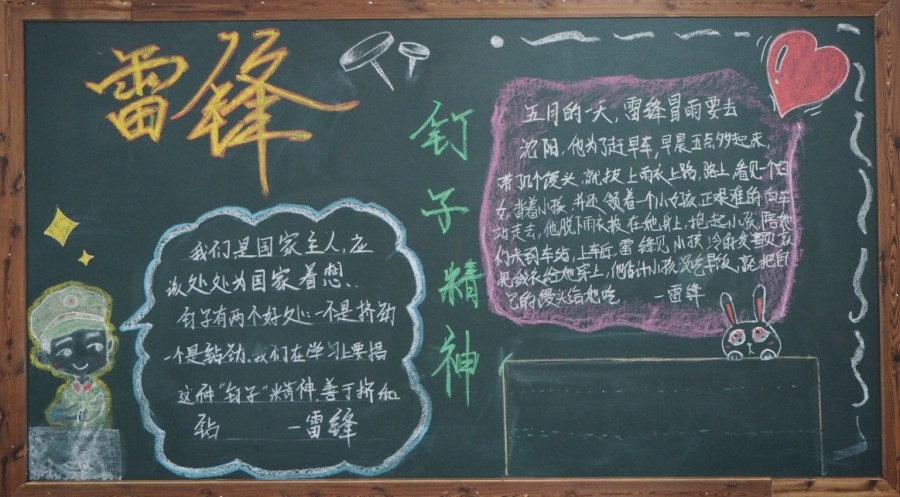 雷锋
钉子精神
我们是国家主人,应
该处处为国家着想、
钉子有两个好处:一个是挤劲
一个是钻劲、我们在学习上要提
这种"钉子"精神,善于挤和
钻 —雷锋
五月的一天,雷锋冒雨要去
沈阳,他为了赶早车,早晨五点多起来,
带了几个馒头,就披上雨衣上路,路上,看见一个妇
女,背着小孩,并还领着一个小女孩正艰难的向车
站走去,他脱下雨衣披在她身上,抱起小孩陪她
们来到车站,上车后,雷锋见小孩冷的发
衣给她穿上,他估计小孩没吃早饭,就把自
己的馒头给她吃 —雷锋